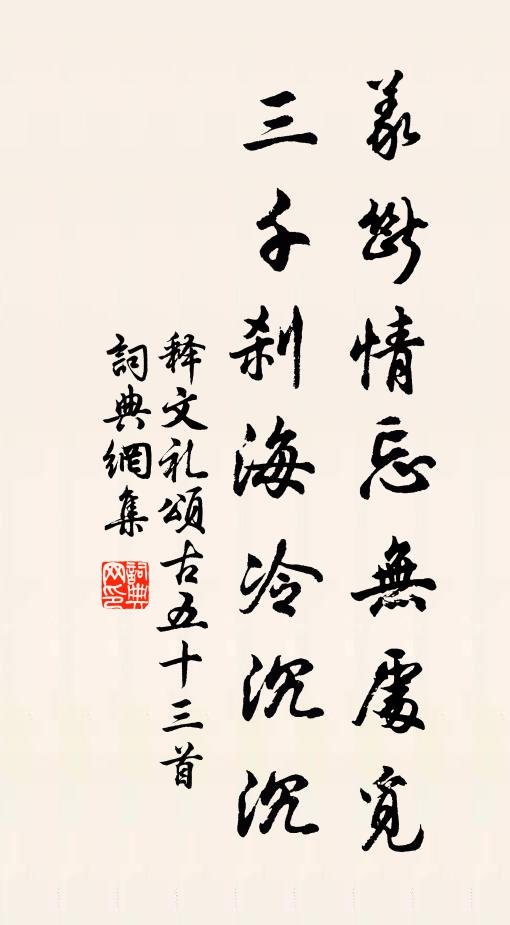 義斷情忘無處覓
三千刹海冷沉沉
释文礼頌古五十三首
詞典網集
詞典网印